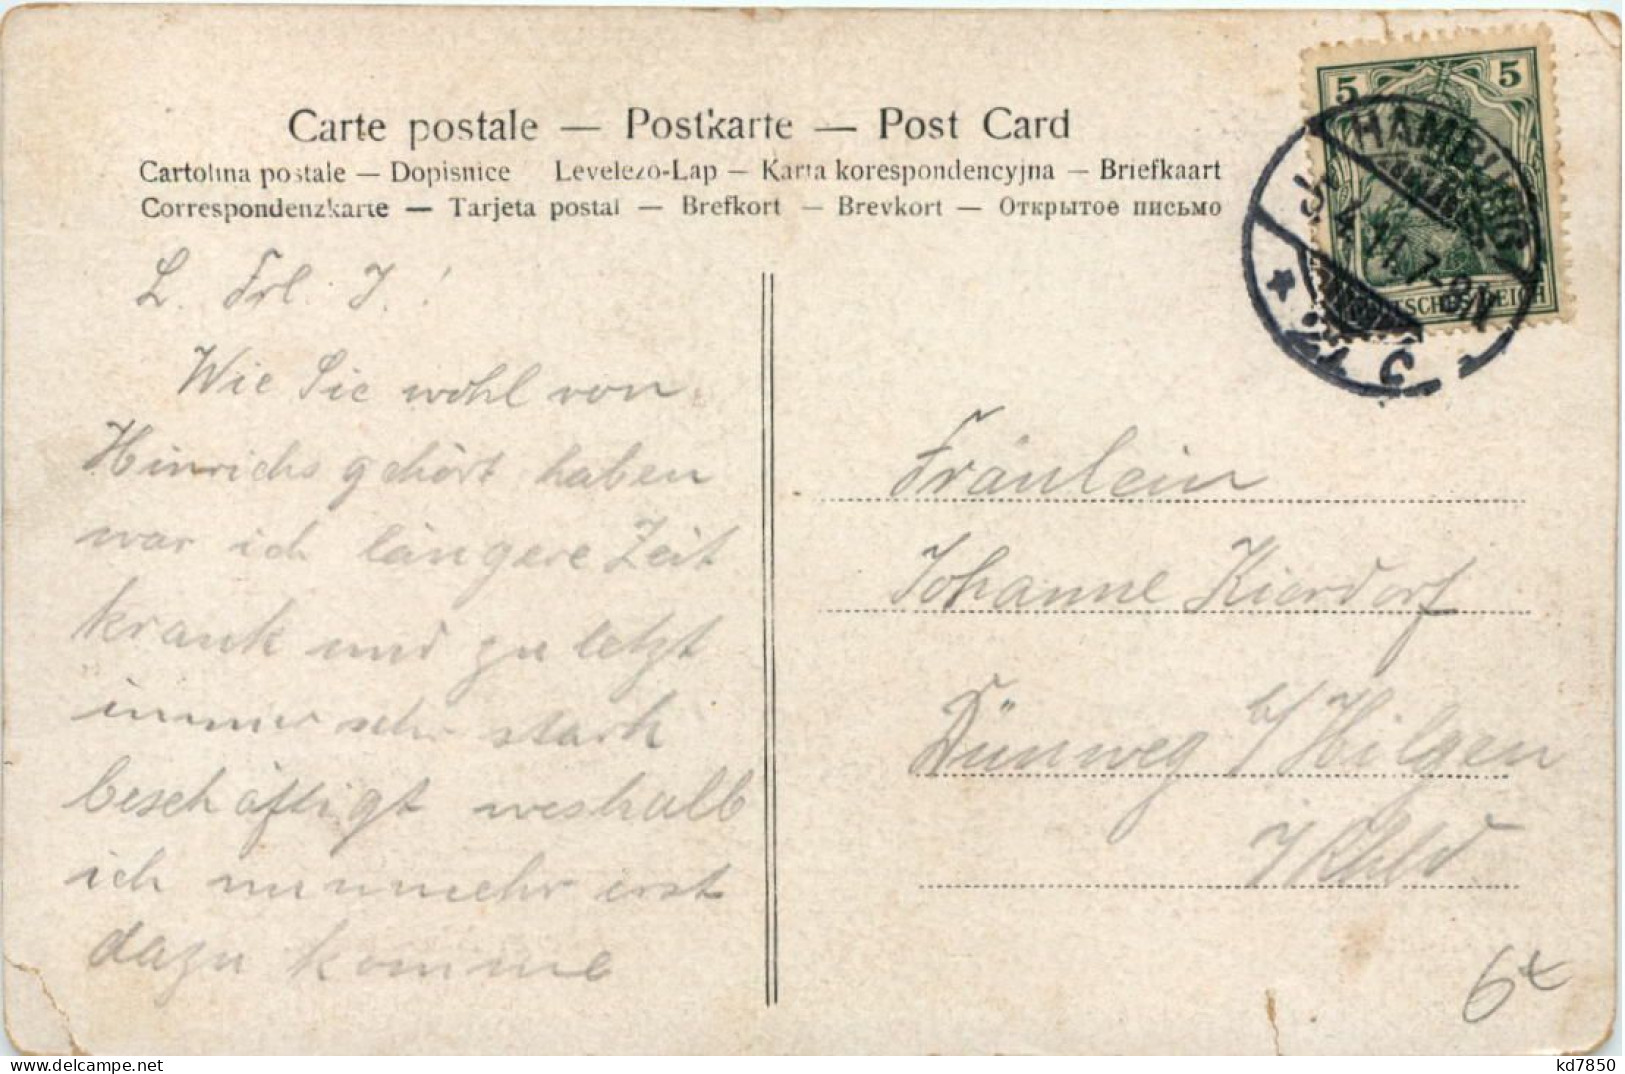 Carte postale — Postkarte — Post Card
Cartolina postale — Dopisnice Levelezo-Lap — Karta korespondencyjna — Briefkaart
Correspondenzkarte — Tarjeta postal — Brefkort — Brevkort — Открытое письмо
5 5
HAMBURG
4.11.7-8N
DEUTSCHES REICH
L. Frl. J.!
Wie Sie wohl von
Hinrichs gehört haben
war ich längere Zeit
krank und zu letzt
immer sehr stark
beschäftigt weshalb
ich nunmehr erst
dazu komme
Fräulein
Johanne Kierdorf
Dünweg b/Hilgen
6
delcampe.net
kd7850